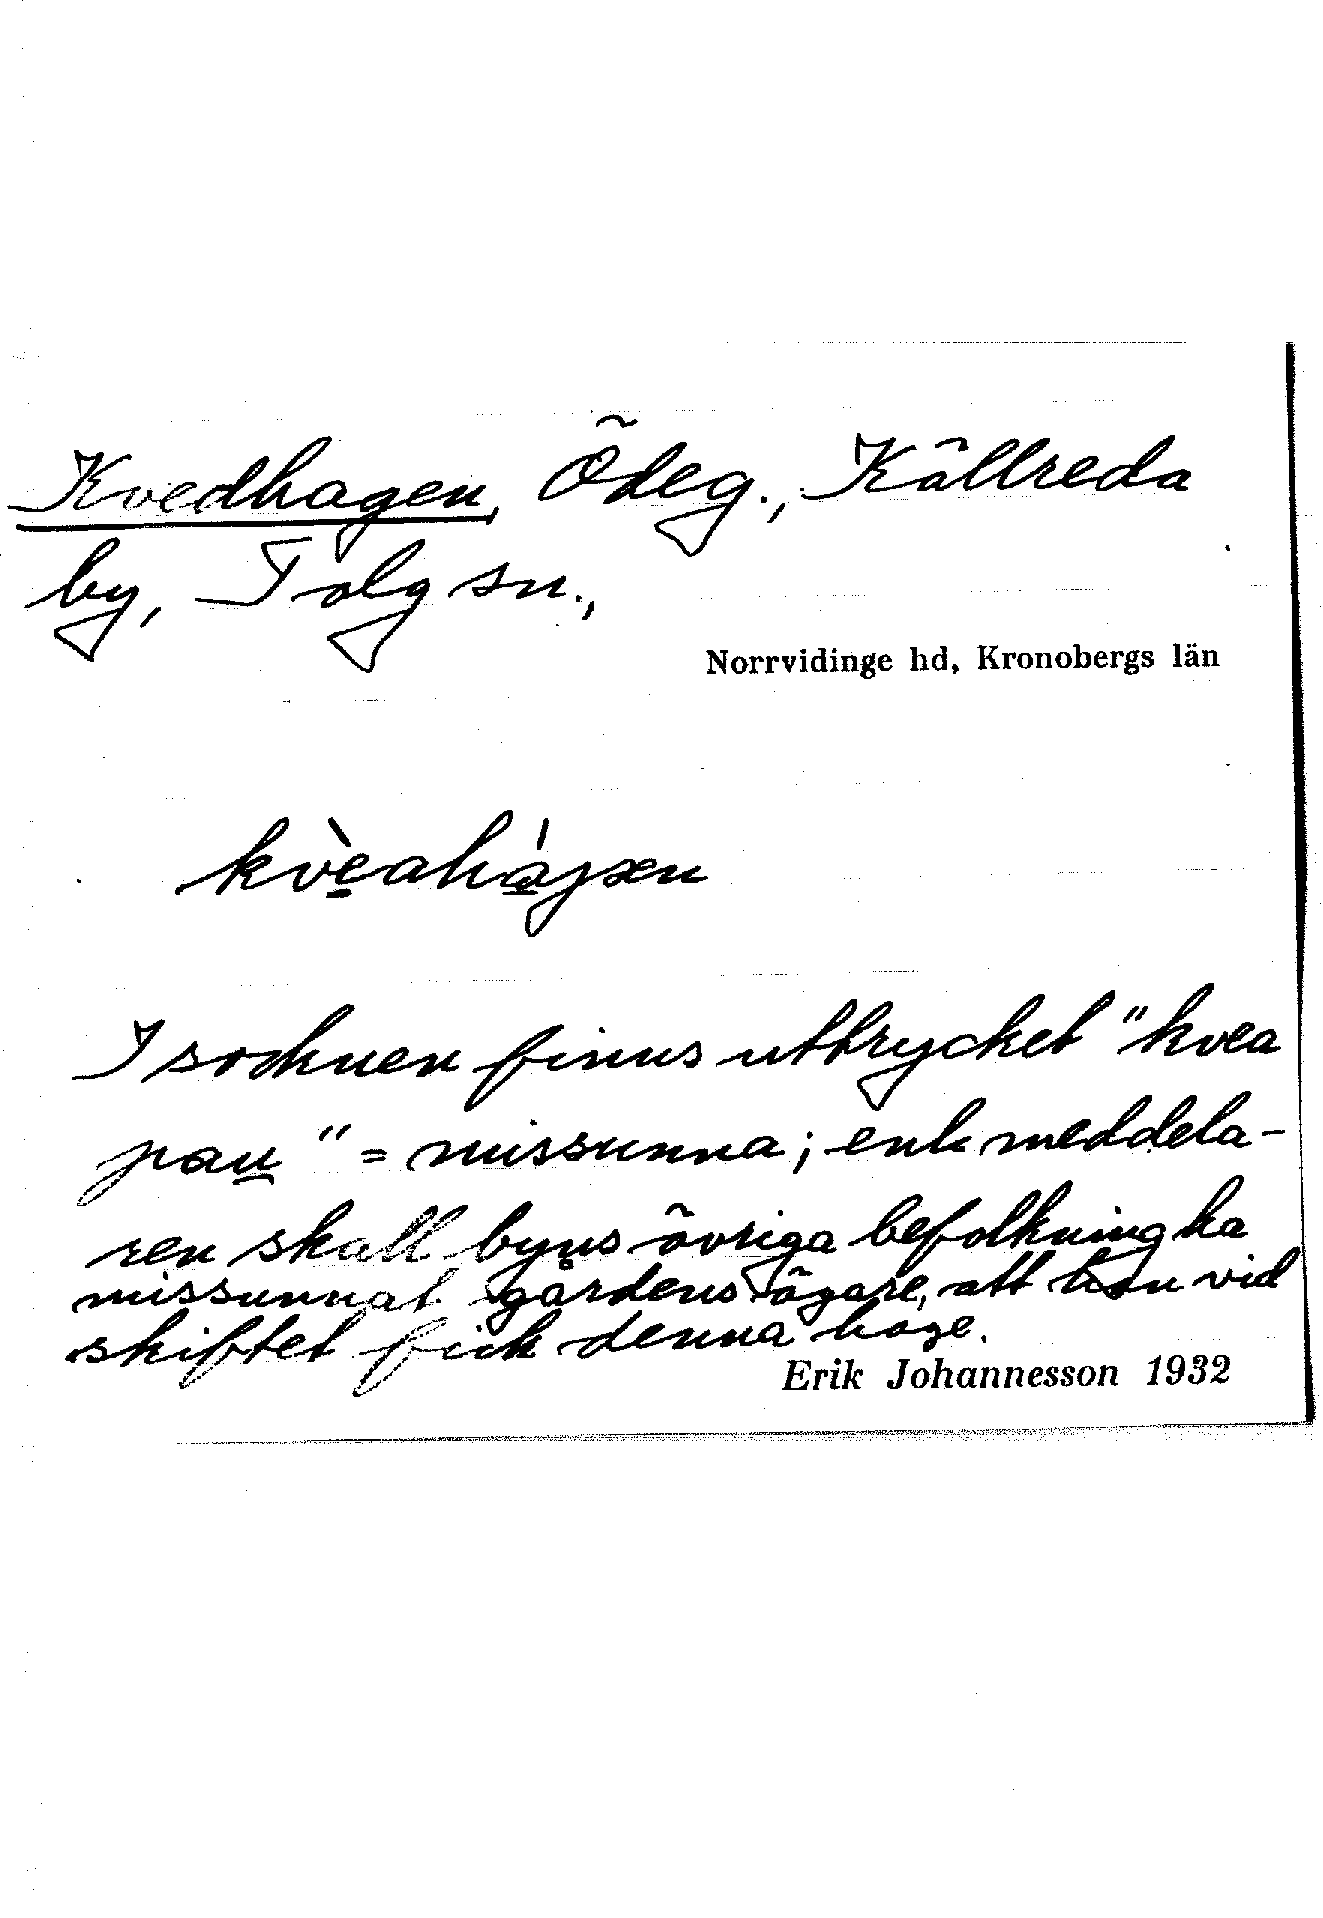 Kvedhagen, Ödeg., Källreda
by, Tolg sn.,
Norrvidinge hd, Kronobergs län
kvèaháɡən
I socknen finns uttrycket "kvea
pau" = missunna; enl. meddela-
ren skall byns övriga befolkning ha
missunnat gårdens ägare, att han vid
skiftet fick denna hage.
Erik Johannesson 1932